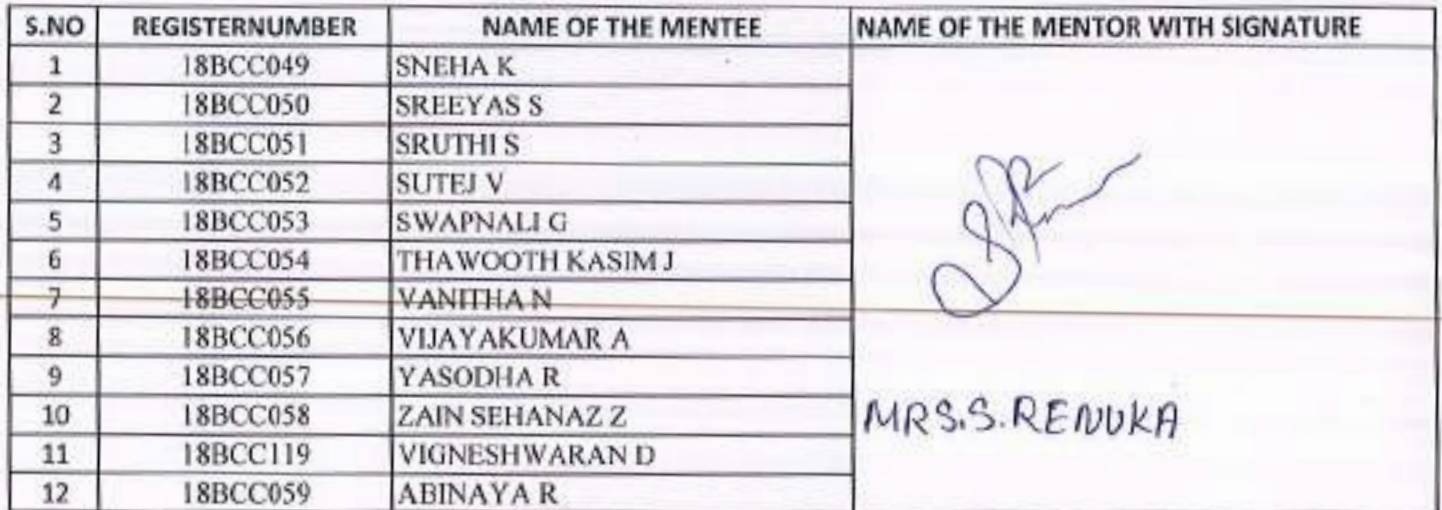 S.NO REGISTERNUMBER NAME OF THE MENTEE NAME OF THE MENTOR WITH SIGNATURE
1 18BCC049 SNEHA K
2 18BCC050 SREEYAS S
3 18BCC051 SRUTHI S
4 18BCC052 SUTEJ V
5 18BCC053 SWAPNALI G
6 18BCC054 THAWOOTH KASIM J
7 18BCC055 VANITHA N
8 18BCC056 VIJAYAKUMAR A
9 18BCC057 YASODHA R
10 18BCC058 ZAIN SEHANAZ Z MRS.S.RENUKA
11 18BCC119 VIGNESHWARAN D
12 18BCC059 ABINAYA R